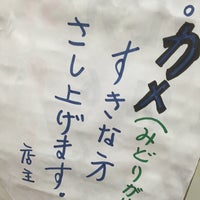 カメ(みどりが
すきな方
さし上げます.
店主